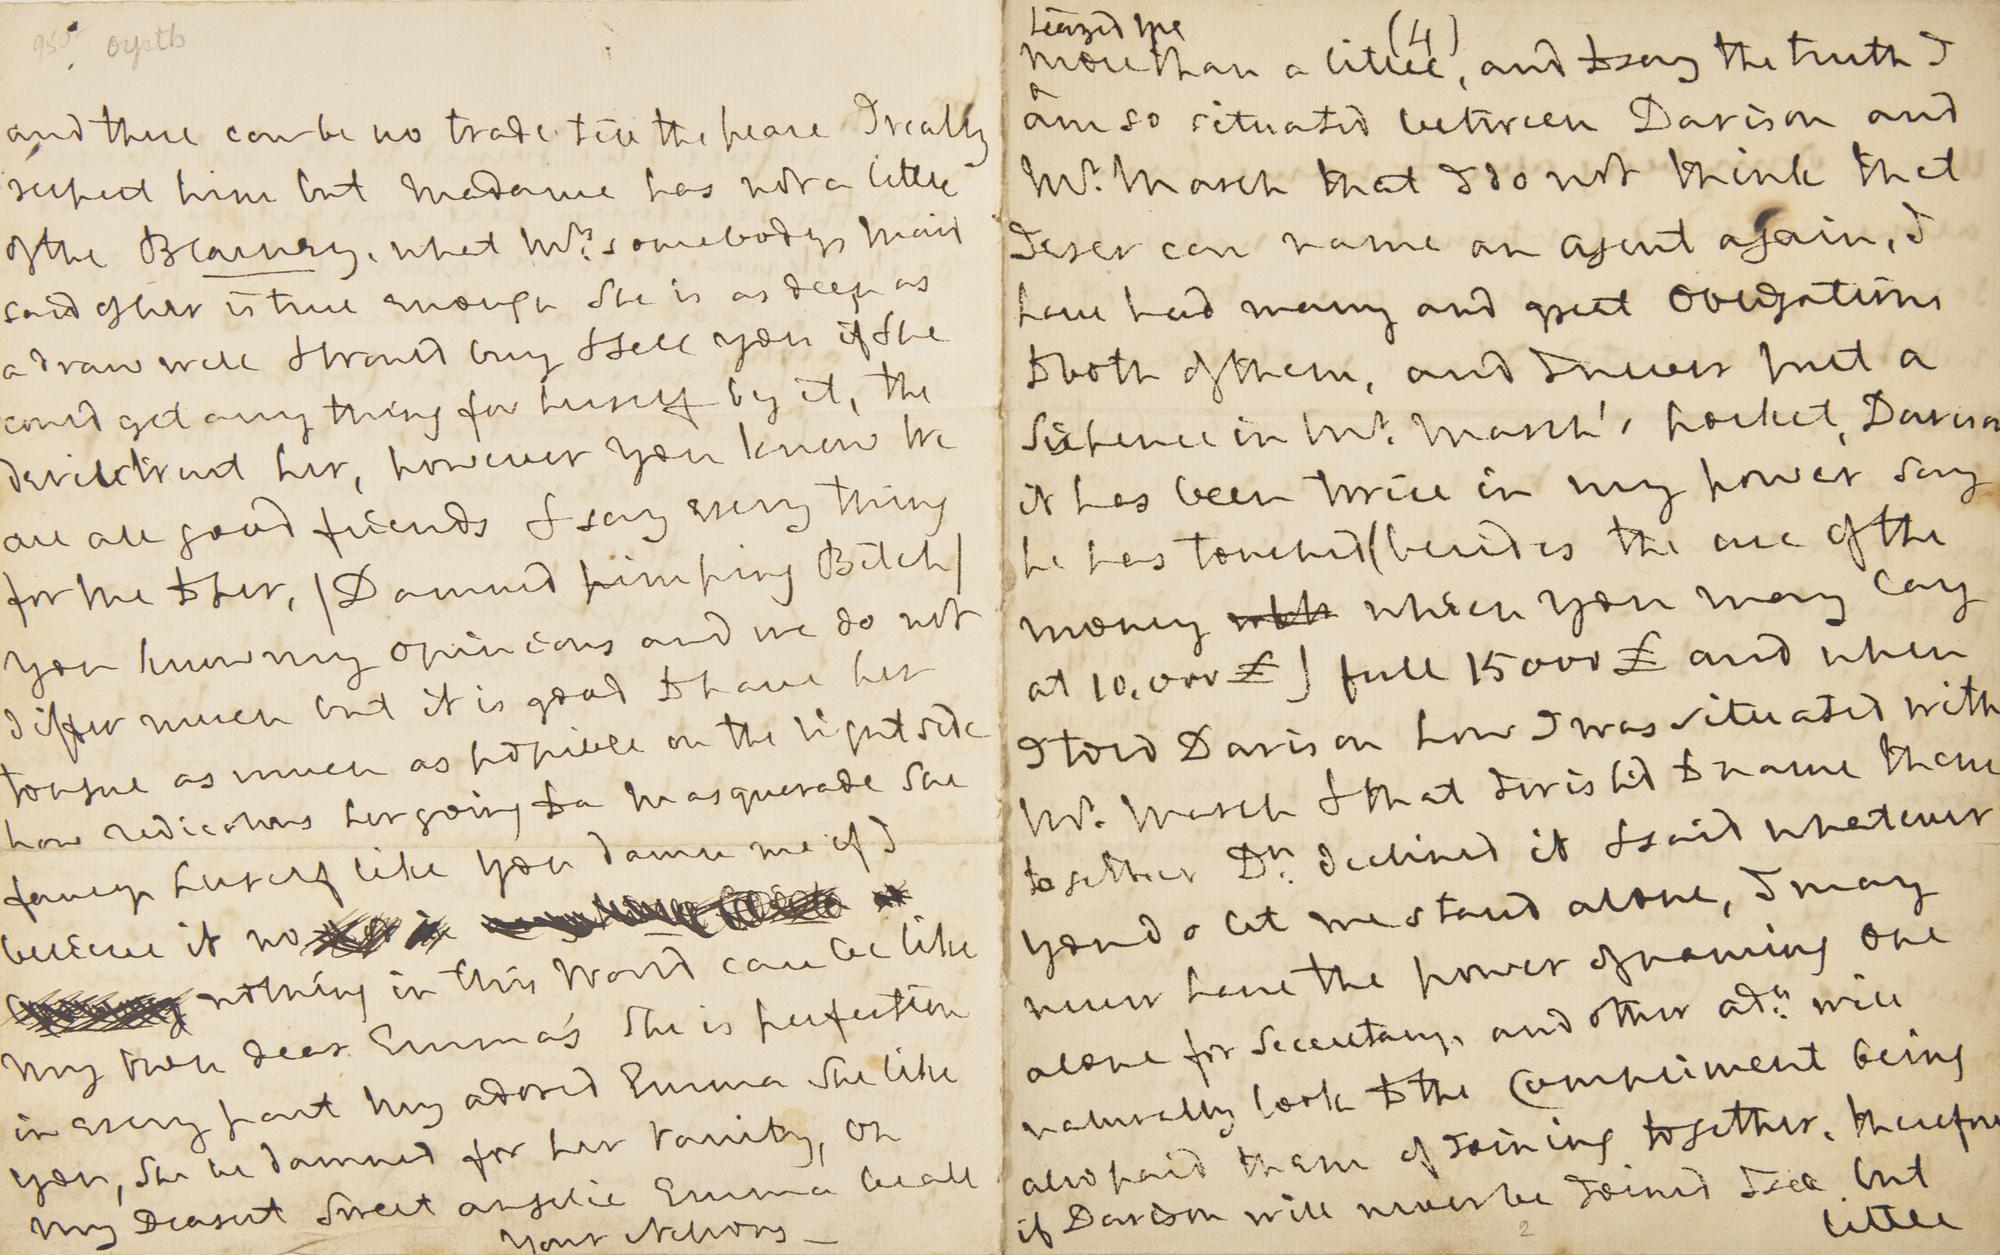 and there can be no trade till the peace I really
respect him but Madame has not a little
of the Blarney, what Mrs. somebodys Maid
said of her is true enough She is as deep as
a draw well & would buy & sell you if She
could get any thing for herself by it, the
devil trust her, however you know we
are all good friends & say every thing
for me to her, (Damned pimping Bitch)
you know my opinions and we do not
differ much but it is good to have her
tongue as much as possible on the right side
how rediculous her going to a Masquerade She
fancys herself like you damn me if I
believe it no
nothing in this World can be like
My own dear Emma's She is perfection
in every part my adored Emma She like
you, She be damned for her vanity, Oh
My Dearest Sweet angelic Emma be all
Your Nelsons
(4)
teazed me
more than a little, and to say the truth I
am so situated between Davison and
Mr. Marsh that I do not think that
I ever can name an agent again, I
have had many and great Obligations
to both of them, and I never put a
Sixpence in Mr. Marsh's pocket, Davison
it has been twice in my power say
he has touched (besides the use of the
money which you may lay
at 10,000£) full 15000£ and when
I told Davison how I was situated with
Mr. Marsh & that I wish'd to name them
together Dn. declined it & said whatever
you do let me stand alone, I may
never have the power of naming one
alone for Secretarys and other adls. will
naturally look to the Compliment being
also paid them of Joining together, therefore
if Davison will never be Joined I see but
little
2